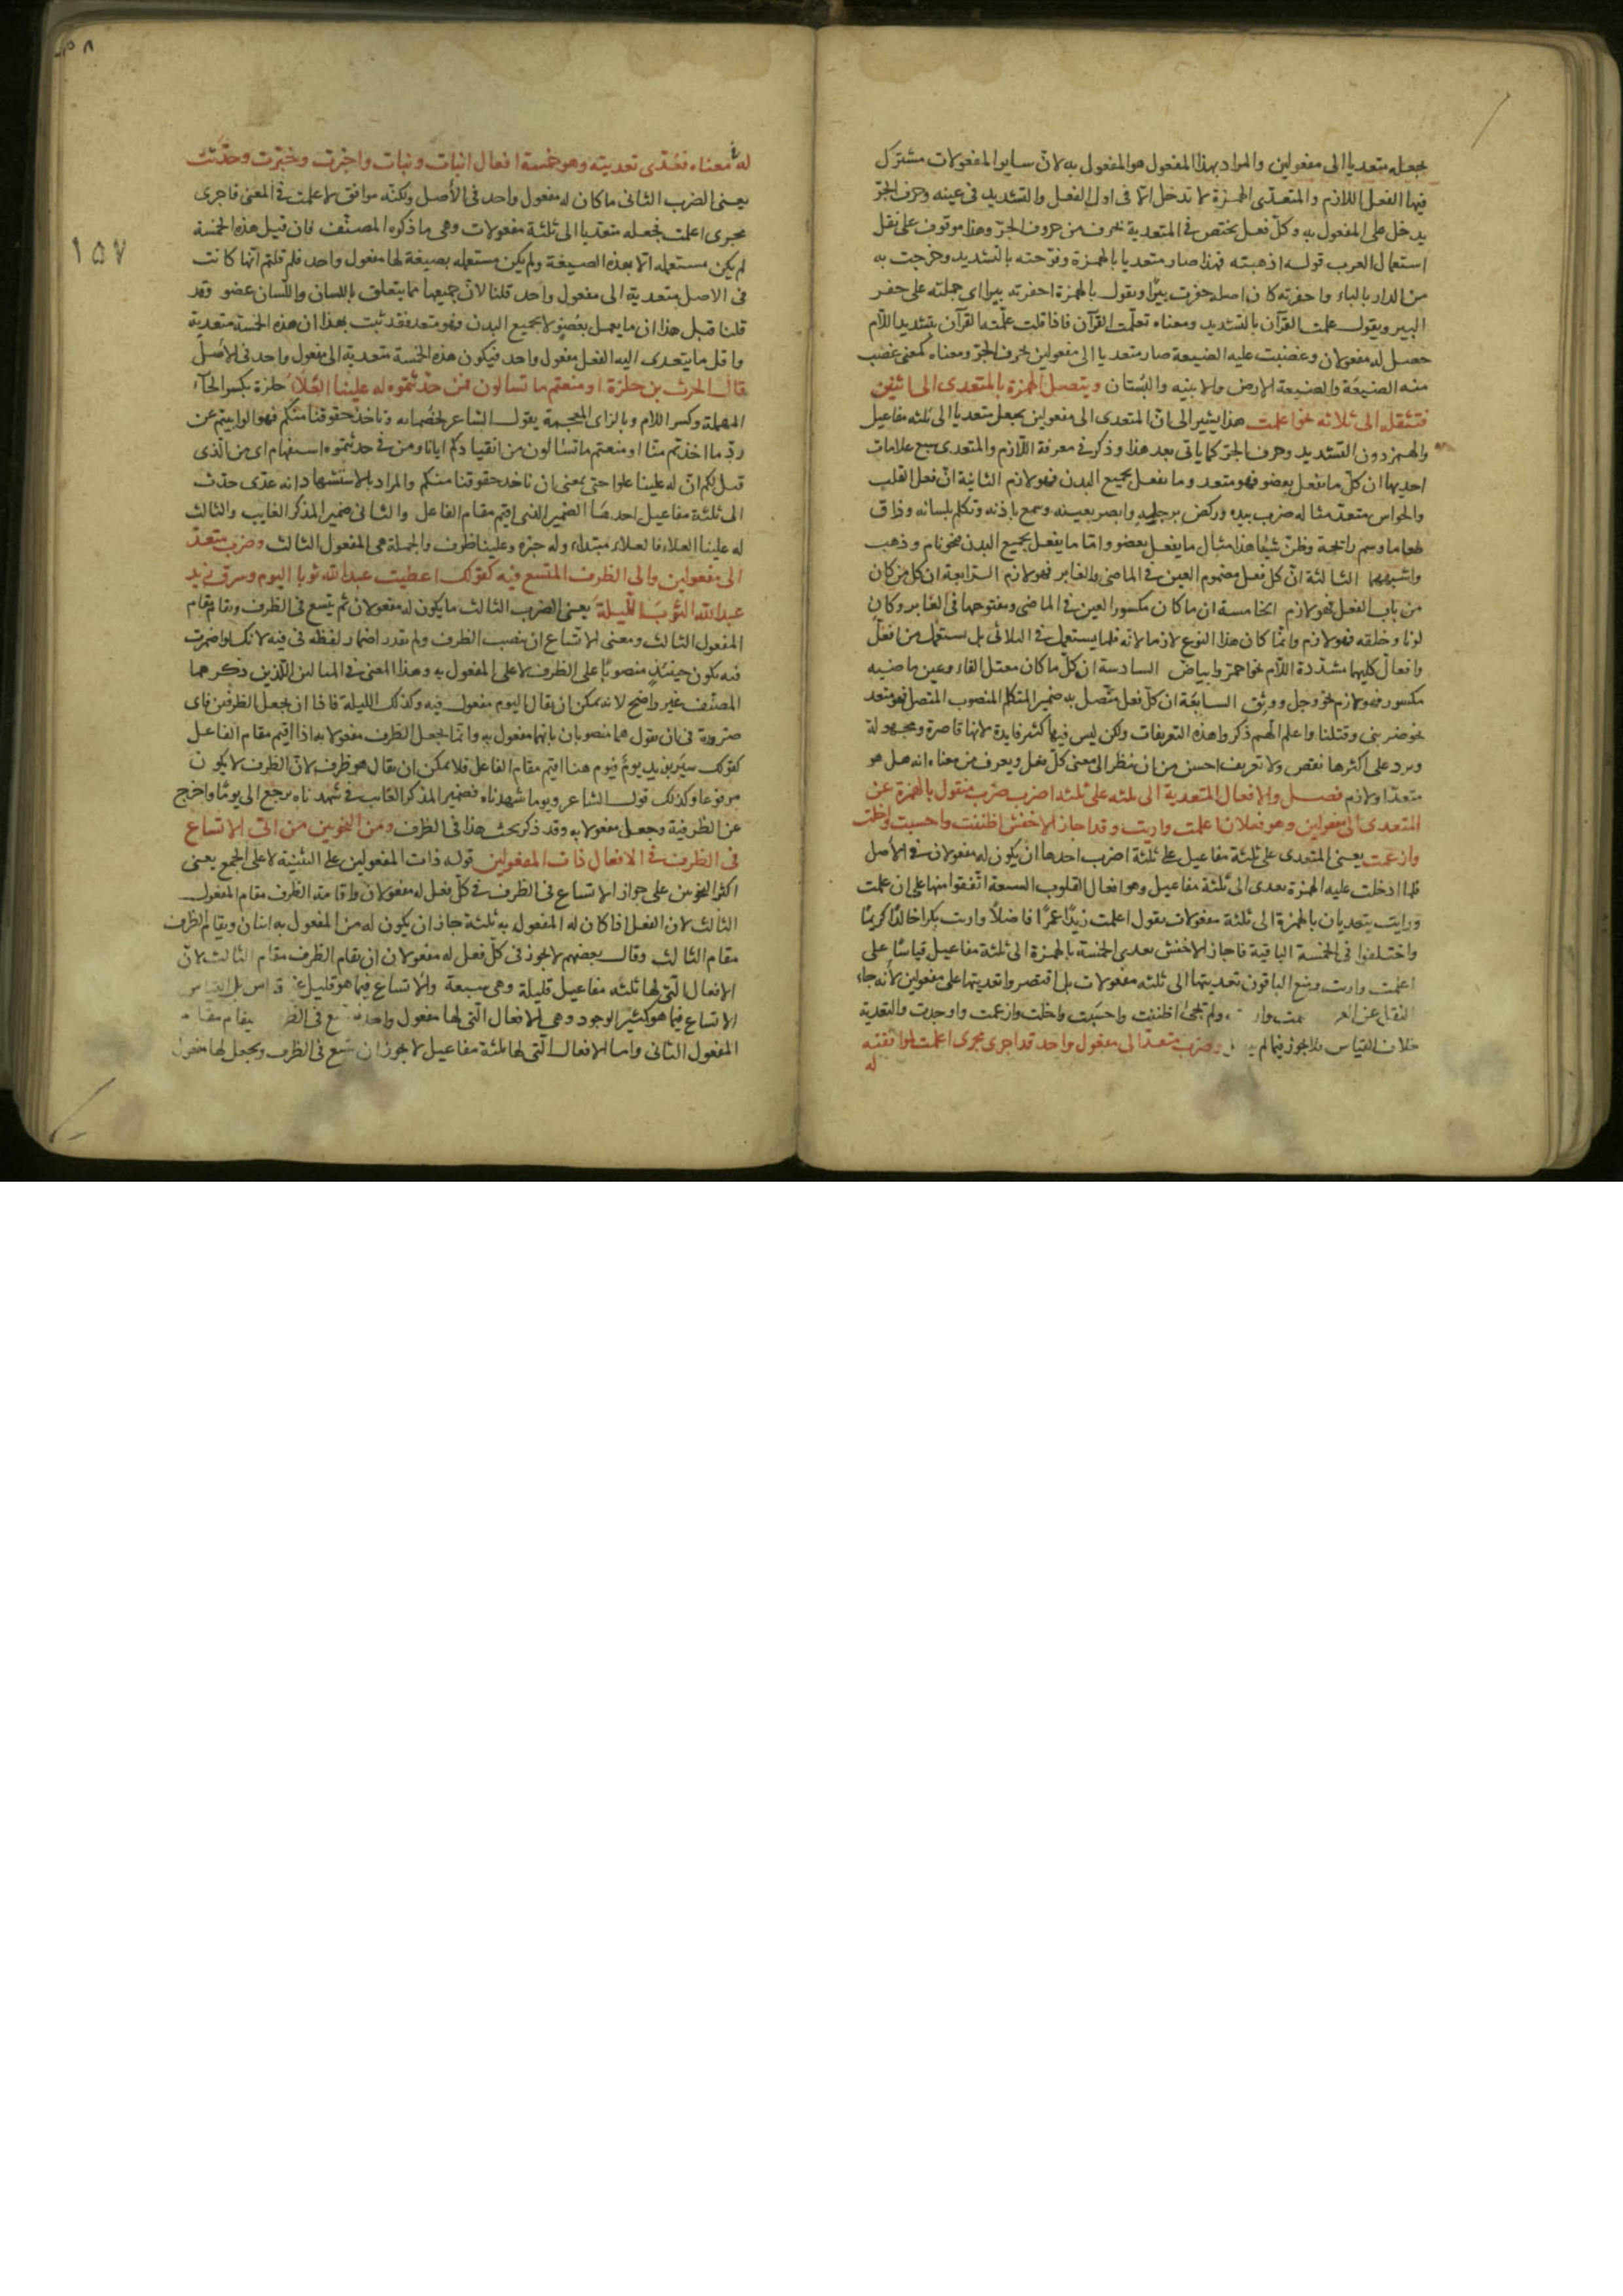 يجعله متعديا الى مفعولين والمراد بهذا المفعول هو المفعول به لانّ ساير المفعولات مشترك
فيها الفعل اللازم والمتعدّى الهمزة لا تدخل الّا فى اول الفعل والتشديد فى عينه وحرف الجرّ
يدخل على المفعول به وكلّ فعل يختص فى المتعدية بحرف من حروف الجرّ وهذا موقوف على نقل
استعمال العرب قوله اذهبته فهذا صار متعديا بالهمزة وفرّحته بالتشديد وخرجت به
من الدار بالباء واحفرته كان اصله حفرت بيرًا ويقول بالهمزة احفرته بيرا اى جملته على حفر
البير ويقول علمت القرآن بالتشديد ومعناه تعلّمت القرآن فاذا قلت علّمته القرآن بتشديد اللّام
حصل له مفعولان وغصبت عليه الضيعة صار متعديا الى مفعولين بحرف الجرّ ومعناه كمعنى غصب
منه الضيعة والضيعة الارض والابنيه والبُستان ويتصل الهمزة بالمتعدى الى اثنين
فتنقله الى ثلاثه نحو اعلمت هذا يشير الى انّ المتعدى الى مفعولين يجعل متعديا الى ثلثه مفاعيل
والهمز دون التشديد وحرف الجرّ كما ياتى بعد هذا وذكر فى معرفة اللّازم والمتعدى سبع علامات
احديها ان كلّ ما يفعل بعضو فهو متعد وما يفعل بجميع البدن فهو لازم الثانية انّ فعل القلب
والحواس متعدّ مثاله ضرب بيده وركض برجليه وابصر بعينه وسمع باذنه وتكلم بلسانه وذاق
طعاما وشم رائحة وظنّ شيئا هذا مثال ما يفعل بعضو وامّا ما يفعل بجميع البدن فنحو نام وذهب
واشبههما الثالثة انّ كل فعل مضموم العين فى الماضى والغابر فهو لازم الرابعة ان كل من كان
من باب الفعل فهو لازم الخامسة ان ما كان مكسور العين فى الماضى ومفتوحها فى الغابر وكان
لونا وخلقه فهو لازم وانّما كان هذا النوع لازما لانه قلما يستعمل فى الثلاثى بل يستعمل من افعلّ
وافعالّ كليهما مشدّدة اللّام نحو احمرّ وابياضّ السادسة ان كلّ ما كان معتل الفاء وعين ماضيه
مكسور فهو لازم نحو وجل ووثق السابعة ان كلّ فعل متّصل به ضمير المتكلم المنصوب المتصل فهو متعد
نحو ضربنى وقتلنا واعلم انّهم ذكروا هذه التعريفات ولكن ليس فيها كثير فايدة لانها قاصرة ومجهولة
ويرد على اكثرها نقص ولا تعريف احسن من ان ينظر الى معنى كلّ فعل ويعرف من معناه انه هل هو
متعدّ او لازم فصل والافعال المتعدية الى ثلثه على ثلثه اضرب ضرب منقول بالهمزة عن
المتعدى الى مفعولين وهو فعلان اعلمت واريت وقد اجاز الاخفش اظننت واحسبت واخلت
وازعمت يعنى المتعدى على ثلثة مفاعيل على ثلثة اضرب احدها ان يكون له مفعولان فى الاصل
فلما ادخلت عليه الهمزة يعدى الى ثلثة مفاعيل وهو افعال القلوب السبعة اتّفقوا منها على ان علمت
ورايت يتعديان بالهمزة الى ثلثة مفعولات يقول اعلمت زيدًا عمرًا فاضلًا واريت بكرا خالدًا كريمًا
واختلفوا فى الخمسة الباقية فاجاز الاخفش تعدية الخمسة بالهمزة الى ثلثة مفاعيل قياسًا على
اعلمت واريت ومنع الباقون تعديتها الى ثلثه مفعولات بل اقتصروا تعديتها على مفعولين لانه جاء
النقل عن العرب ولم يجئ اظننت واحسبت واخلت وازعمت واوجدت والتعدية
خلاف القياس فلا يجوز فيما لم وضرب متعدّ الى مفعول واحد قد اجرى مجرى اعلمت لموافقته
له
له فى معناه فعُدّى تعديته وهو خمسة افعال انبات ونبات واخبرت وخبّرت وحدّثت
يعنى الضرب الثانى ما كان له مفعول واحد فى الأصل ولكنّه موافق لاعلمت فى المعنى فاجرى
مجرى اعلمت بجعله متعدّيا الى ثلثة مفعولات وهى ما ذكره المصنّف فان قيل هذه الخمسة
لم يكن مستعمله الّا بهذه الصيغة ولم يكن مستعمله بصيغة لها مفعول واحد فلم قلتم انّها كانت
فى الاصل متعدية الى مفعول واحد قلنا لانّ جميعها مما يتعلق باللسان واللّسان عضو وقد
قلنا قبل هذا ان ما يعمل بعُضوٍ لا بجميع البدن فهو متعد فقد ثبت بهذا ان هذه الخمسة متعدية
واقل ما يتعدى اليه الفعل مفعول واحد فيكون هذه الخمسة متعدية الى مفعول واحد فى الأصل
قال الحرث بن حلزة او منعتم ما تسالون فمن حدّثتموه له علينا العُلاءُ حلزة بكسر الحآء
المهملة وكسر اللام وبالزاى المعجمة يقول الشاعر لخُصمانه وناخذ حقوقنا منكم فهو الو ابيتم عن
ردّ ما اخذتم منّا او منعتم ما تسالون من انقيادكم ايانا ومن فى حدثتموه استفهام اى من الّذى
قيل لكم انّ له علينا علوا حتى يمعنى ان ناخذ حقوقنا منكم والمراد بالاستشهاد انه عدّى حدّث
الى ثلثة مفاعيل احدهما الضمير الذى اقيم مقام الفاعل والثانى ضمير المذكر الغايب والثالث
له علينا العلاء فالعلاء مبتداء وله خبره وعلينا ظرف والجملة هى المفعول الثالث وضرب متعدّ
الى مفعولين والى الظرف المتّسع فيه كقولك اعطيت عبد الله ثوبا اليوم وسرق زيد
عبد الله الثوبَ اللّيلةَ يعنى الضرب الثالث ما يكون له مفعولان ثم يتّسع فى الظرف ويقام مقام
المفعول الثالث ومعنى الاتّساع ان ينصب الظرف ولم يقدر اضمار لفظه فى فيه لانك لو اضمرت
فيه يكون حينئذٍ منصوبًا على الظرف لا على المفعول به وهذا المعنى فى المثالين اللّذين ذكرهما
المصنّف غير واضح لانه يمكن ان يقال اليوم مفعول فيه وكذلك الليلة فاذا ان يجعل الظرفين فاى
ضرورة فى ان يقول هما منصوبان بانهما مفعول به وانّما يجعل الظرف مفعولا به اذا اقيم مقام الفاعل
كقولك سير بزيد يومٌ فيوم هنا اقيم مقام الفاعل فلا يمكن ان يقال هو ظرف لانّ الظرف لا يكون
مرفوعا وكذلك قول الشاعر ويوما شهدناه فضمير المذكر الغايب فى شهدناه يرجع الى يومًا واخرج
عن الظرفية وجعل مفعولا به وقد ذكر بحث هذا فى الظرف ومن النحويين من ابى الاتساع
فى الظرف فى الافعال ذات المفعولين قوله ذات المفعولين على التثنية لا على الجمع يعنى
اكثر النحويين على جواز الاتساع فى الظرف فى كلّ فعل له مفعولان واقامة الظرف مقام المفعول
الثالث لان الفعل اذا كان له المفعول به ثلثة جاز ان يكون له من المفعول به اثنان ويقام الظرف
مقام الثالث وقال بعضهم لا يجوز فى كلّ فعل له مفعولان ان يقام الظرف مقام الثالث لانّ
الافعال الّتى لها ثلثه مفاعيل قليلة وهى سبعة والاتساع فيما هو قليل غير قياس بل القياس
الاتساع فيما هو كثير الوجود وهى الافعال الّتى لها مفعول واحد فى الظرف يقام مقام
المفعول الثانى واما الافعال الّتى لها ثلثة مفاعيل لا يجوز ان يتّسع فى الظرف ويجعل لها مفعول
١٥٧